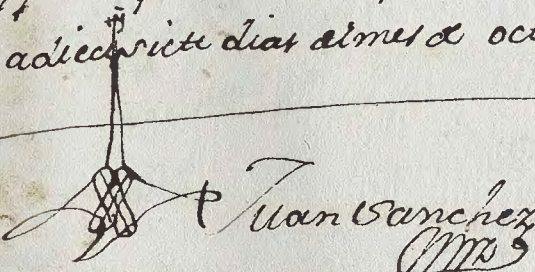 a diez y siete dias del mes de oct
Juan Sanchez